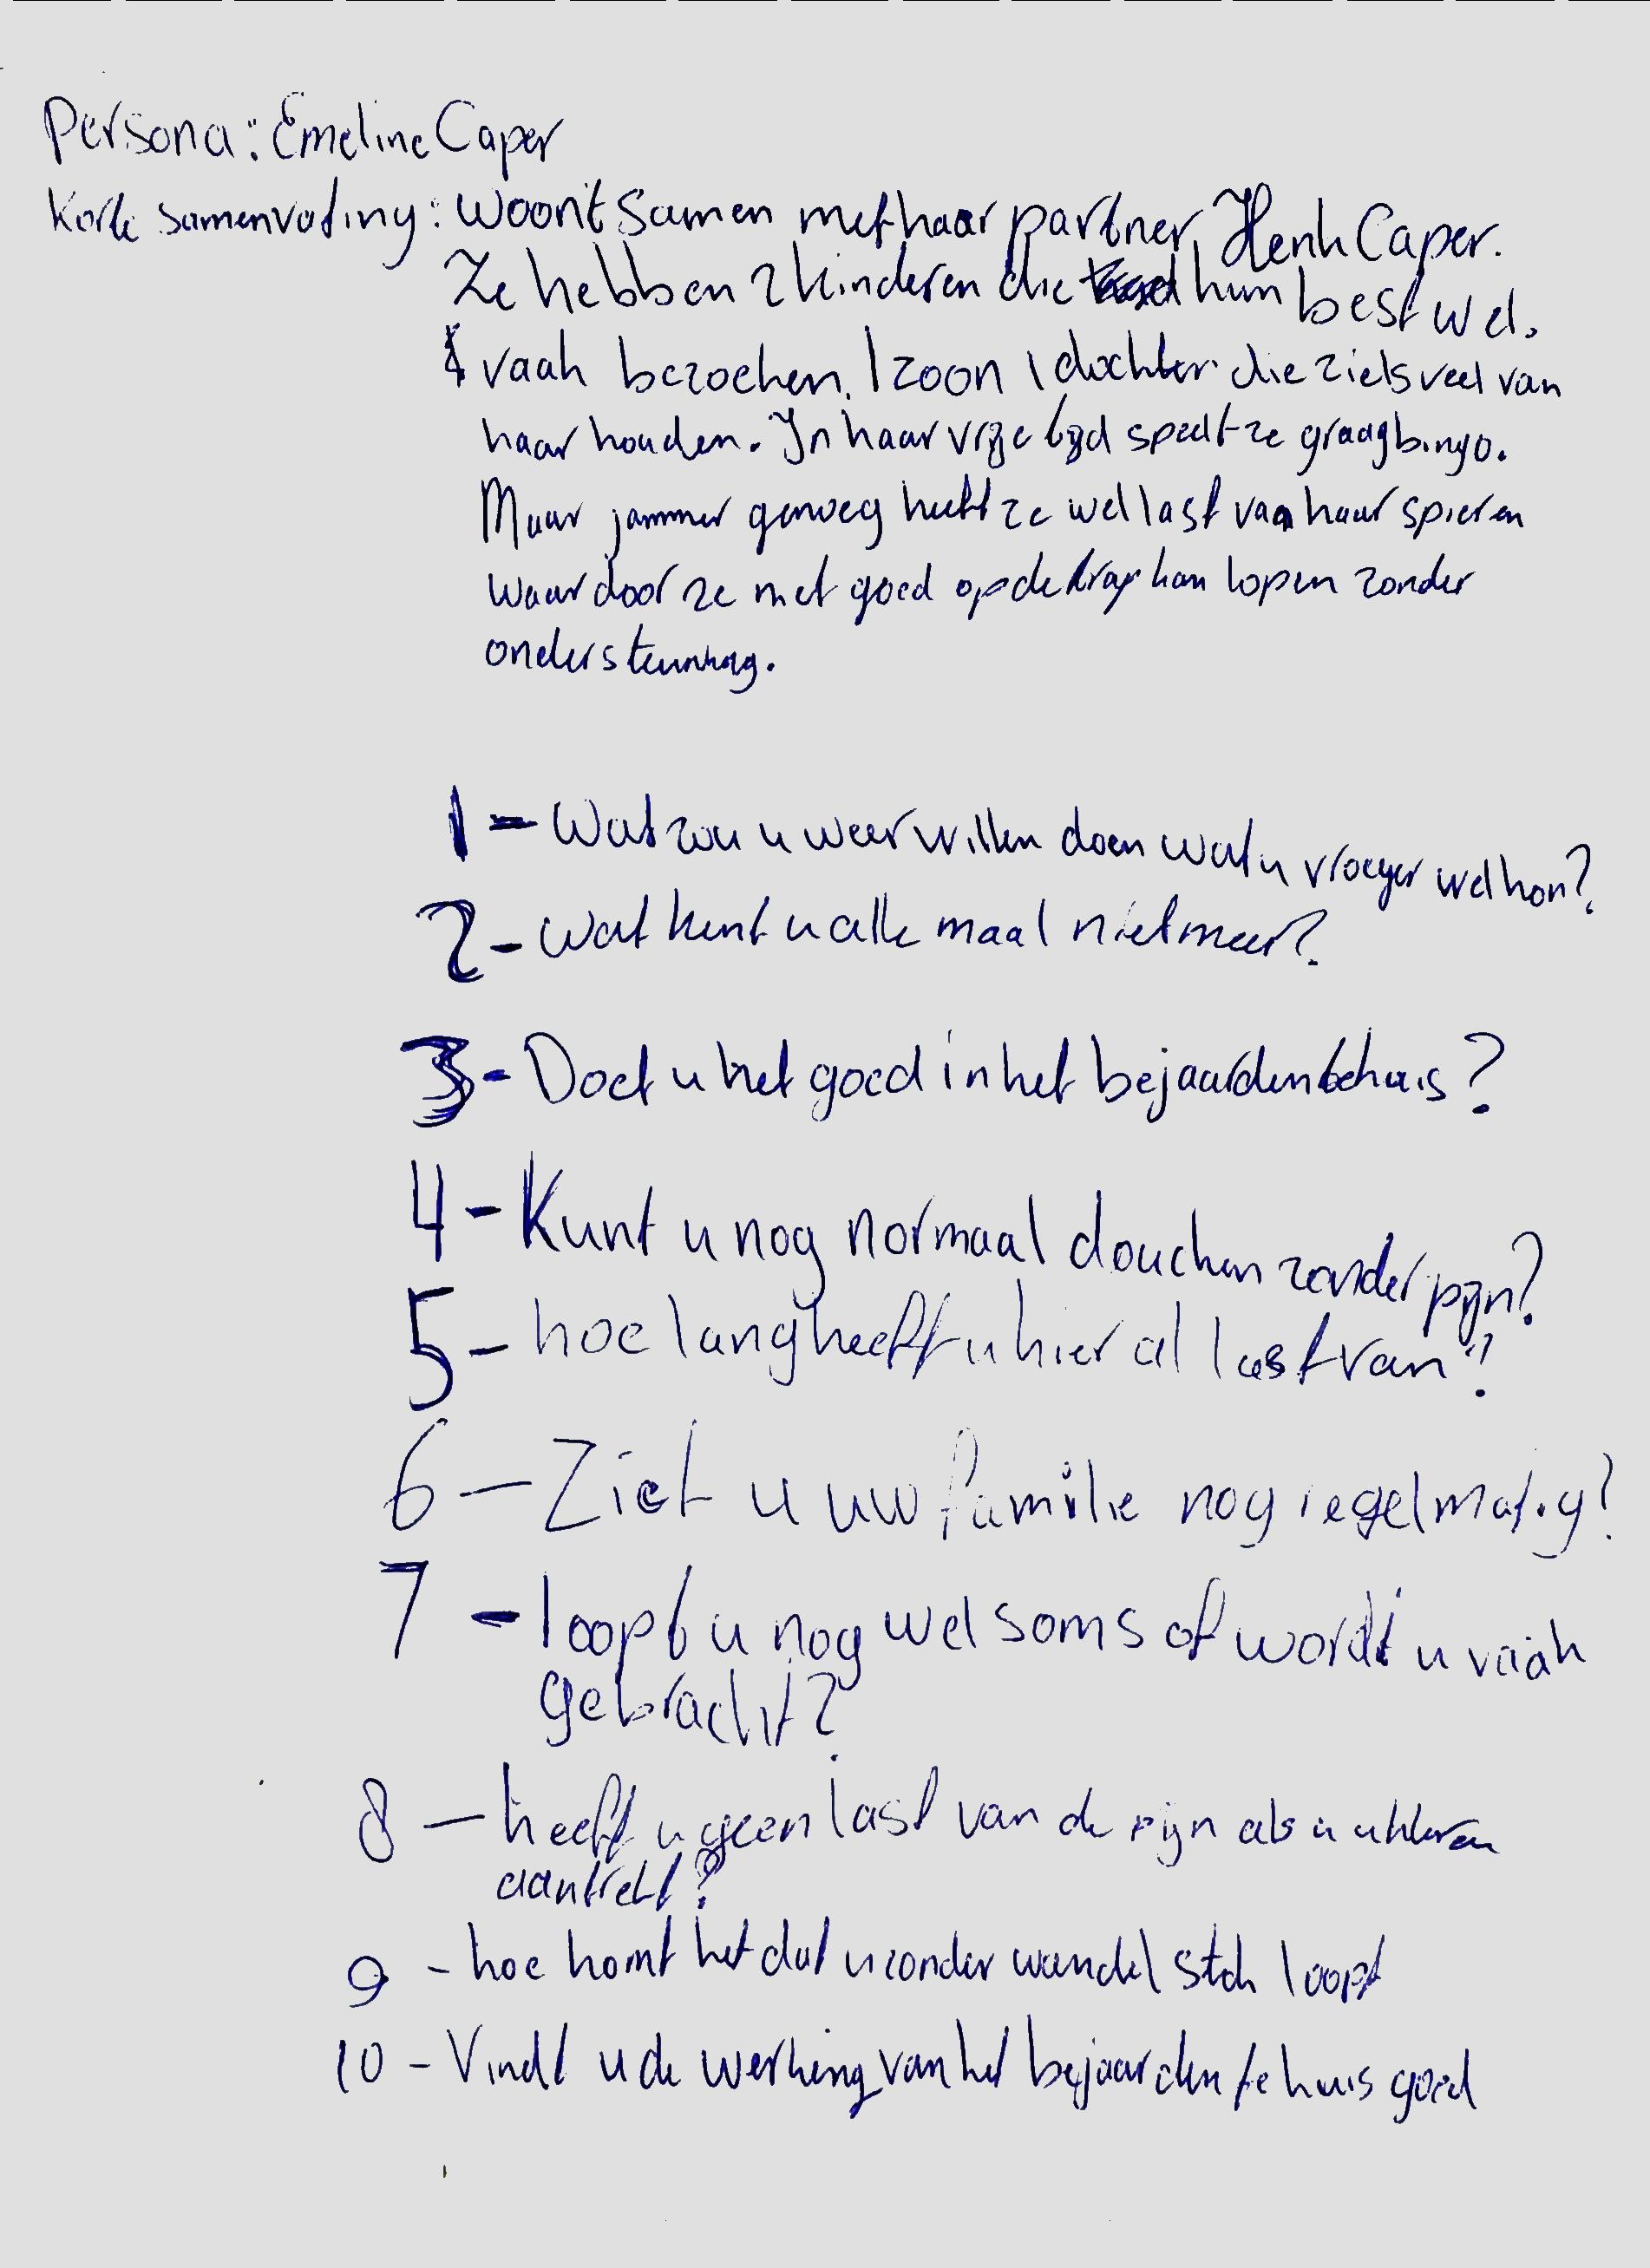 Persona: Emeline Caper
Korte samenvating: Woont samen met haar partner, Henk Caper.
Ze hebben 2 kinderen die hun best wel.
vaak bezoeken. 1 zoon 1 dochter. die zielsveel van
haar houden. In haar vrije tijd speelt ze graag bingo.
Maar jammer genoeg heeft ze wel last van haar spieren
waardoor ze niet goed op de trap kan lopen zonder
ondersteuning.
1 - Wat zou u weer willen doen wat u vroeger wel kon?
2 - wat kunt u alle maal niet meer?
3 - Doet u het goed in het bejaardentehuis?
4 - Kunt u nog normaal douchen zonder pijn?
5 - hoe lang heeft u hier al last van?
6 - Ziet u uw familie nog regelmatig?
7 - loopt u nog wel soms of wordt u vaak
gebracht?
8 - heeft u geen last van de pijn als u kleren
aantrekt?
9 - hoe komt het dat u zonder wandel stok loopt
10 - Vindt u de werking van het bejaarden tehuis goed